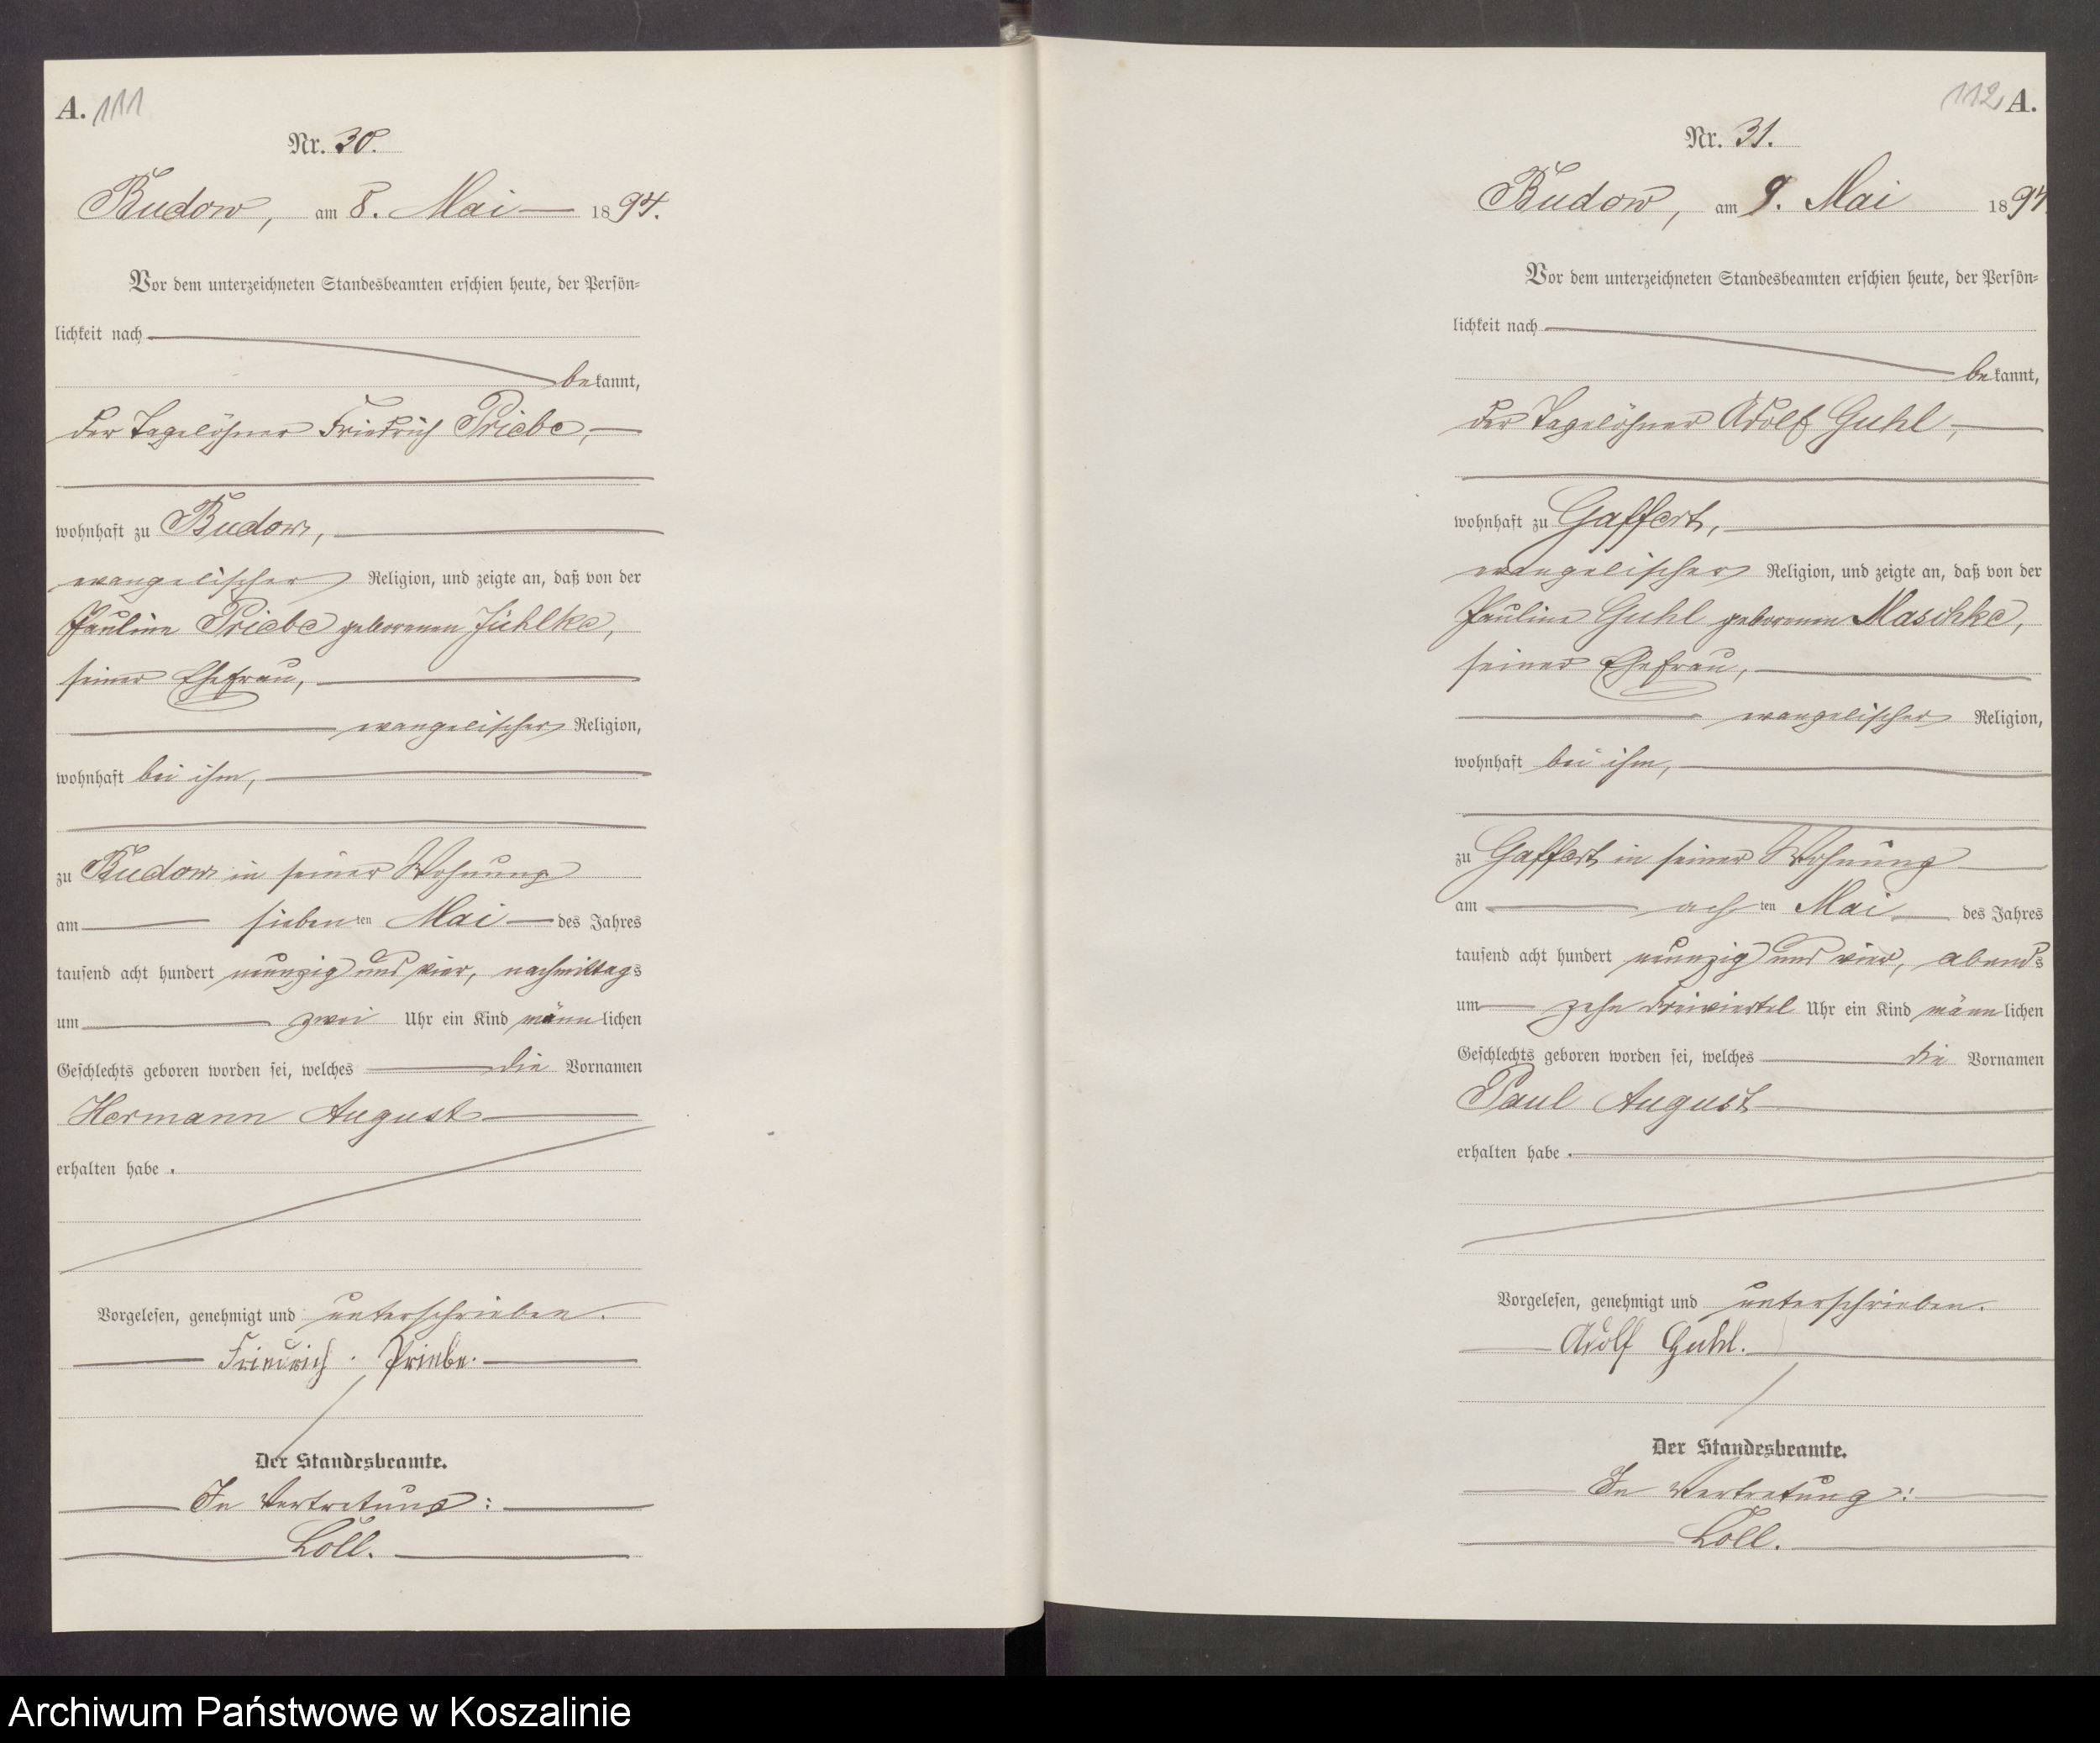 A. 111
Nr. 30.
Budow, am 8. Mai 1894.
Vor dem unterzeichneten Standesbeamten erschien heute, der Persön=
lichkeit nach
bekannt,
der Tagelöhner Friedrich Priebe,
wohnhaft zu Budow,
evangelischer Religion, und zeigte an, daß von der
Pauline Priebe geborenen Jühlke,
seiner Ehefrau,
evangelischer Religion,
wohnhaft bei ihm,
zu Budow in seiner Wohnung
am siebenten Mai des Jahres
tausend acht hundert neunzig und vier, nachmittags
um zwei Uhr ein Kind männlichen
Geschlechts geboren worden sei, welches die Vornamen
Hermann August
erhalten habe.
Vorgelesen, genehmigt und unterschrieben.
Friedrich Priebe.
Der Standesbeamte.
In Vertretung:
Löll.
112 A.
Nr. 31.
Budow, am 9. Mai 1894
Vor dem unterzeichneten Standesbeamten erschien heute, der Persön=
lichkeit nach
bekannt,
der Tagelöhner Adolf Guhl,
wohnhaft zu Gaffert,
evangelischer Religion, und zeigte an, daß von der
Pauline Guhl geborenen Maschke,
seiner Ehefrau,
evangelischer Religion,
wohnhaft bei ihm,
zu Gaffert in seiner Wohnung
am achten Mai des Jahres
tausend acht hundert neunzig und vier, abends
um zehn dreiviertel Uhr ein Kind männlichen
Geschlechts geboren worden sei, welches die Vornamen
Paul August
erhalten habe.
Vorgelesen, genehmigt und unterschrieben.
Adolf Guhl.
Der Standesbeamte.
In Vertretung:
Löll.
Archiwum Państwowe w Koszalinie